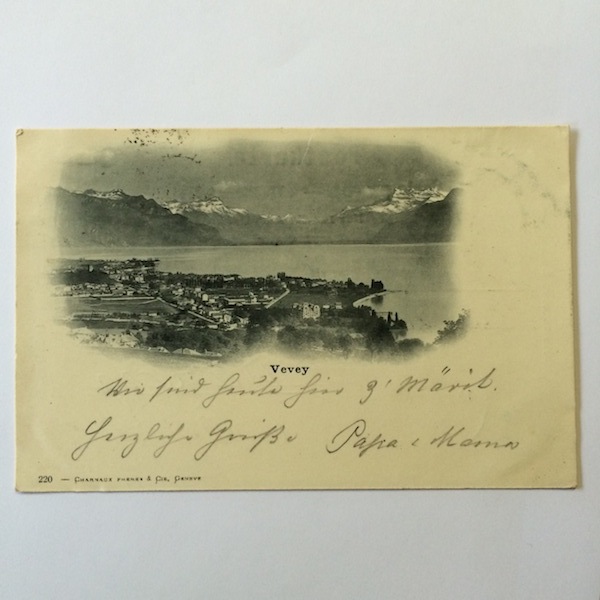 Vevey
Wir sind heute hier z' Märit.
Herzliche Grüße Papa & Mama
220 — CHARNAUX FRÈRES & CIE, GENÈVE